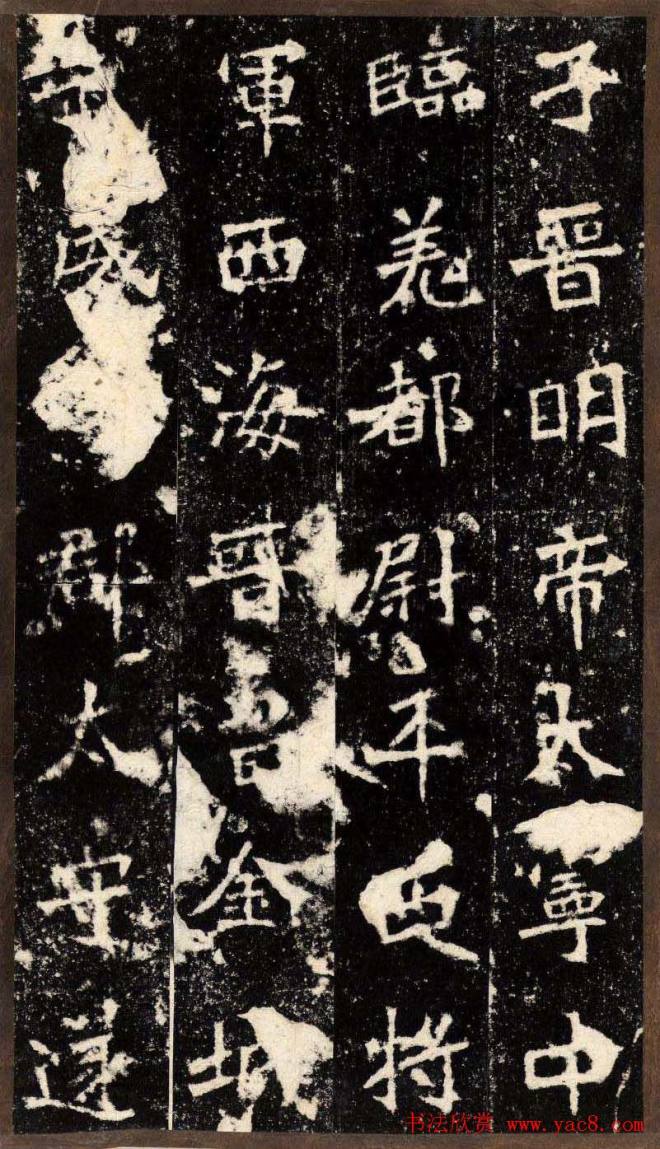 子晉明帝太寧中
臨羌都尉平西將
軍西海晉昌金城
威郡太守遂
书法欣赏 www.yac8.com